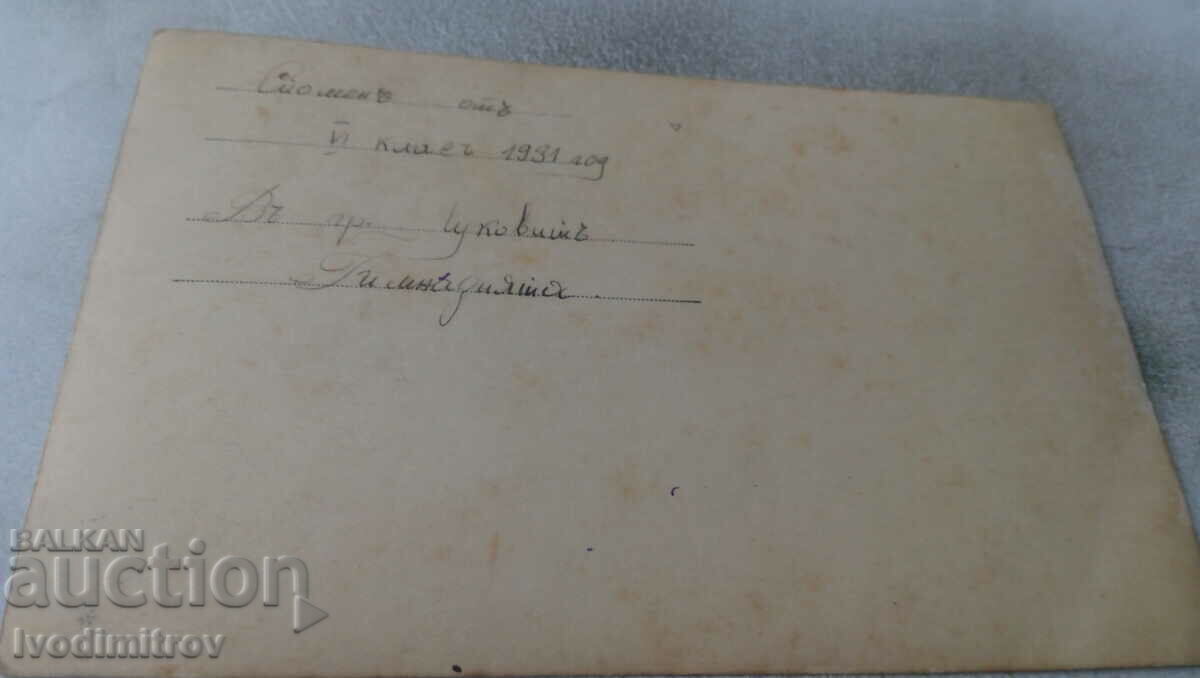 Споменъ отъ
VI класъ 1931 год
Въ гр. Луковитъ
Гимназията.
BALKAN
auction
Ivodimitrov